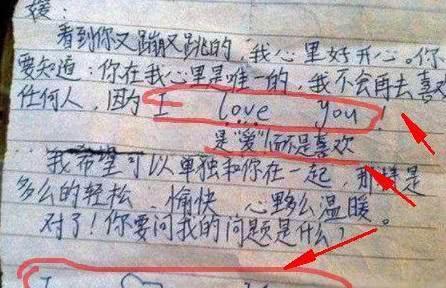 媛：
看到你又蹦又跳的，我心里好开心。你
要知道：你在我心里是唯一的，我不会再去喜欢
任何人，因为 I love you！
是“爱”而不是喜欢
我希望可以单独和你在一起，那将是
多么的轻松、愉快、心野多么温暖。
对了！你要问我的问题是什么？